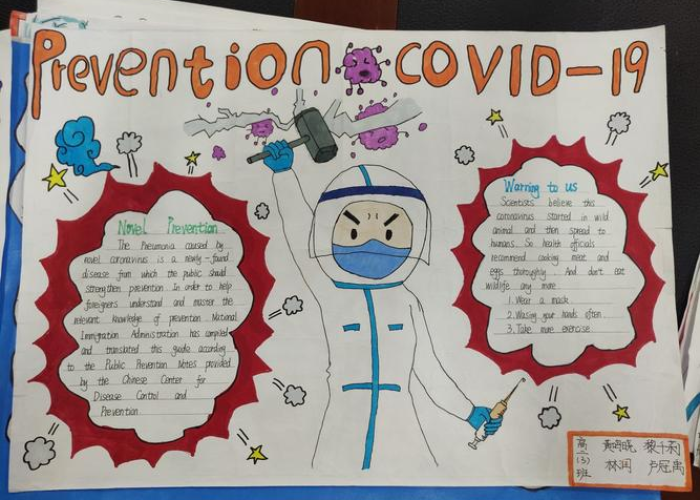 Prevention COVID-19
Novel Prevention
The Pneumonia caused by
novel coronavirus is a newly-found
disease from which the public should
strengthen prevention. In order to help
foreigners understand and master the
relevant knowledge of prevention National
Immigration Administration has compiled
and translated this guide according
to the Public Prevention Notes provided
by the Chinese Center for
Disease Control and
Prevention
Warning to us
Scientists believe this
coronavirus started in wild
animal and then spread to
humans. So health officials
recommend cooking meat and
eggs thoroughly. And don't eat
wildlife any more
1. Wear a mask
2. Wasing your hands often
3. Take more exercise
高
(3)
班
林润